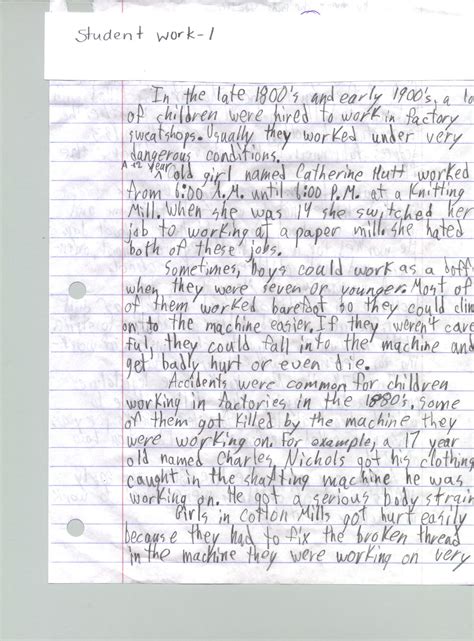 Student work-1
In the late 1800's and early 1900's, a lo
of children were hired to work in factory
sweatshops. Usually they worked under very
dangerous conditions.
A 12 year
old girl named Catherine Hutt worked
from 6:00 A.M. until 6:00 P.M. at a Knitting
Mill. When she was 14 she switched her
job to working at a paper mill. she hated
both of these jobs.
Sometimes, boys could work as a doff
when they were seven or younger. Most of
of them worked barefoot so they could clim
on to the machine easier. If they weren't care
ful, they could fall into the machine and
get badly hurt or even die.
Accidents were common for children
working in factories in the 1880's. some
of them got killed by the machine they
were working on. For example, a 17 year
old named Charles Nichols got his clothing
caught in the shafting machine he was
working on. He got a serious body strain
Girls in Cotton Mills got hurt easily
because they had to fix the broken thread
in the machine they were working on very